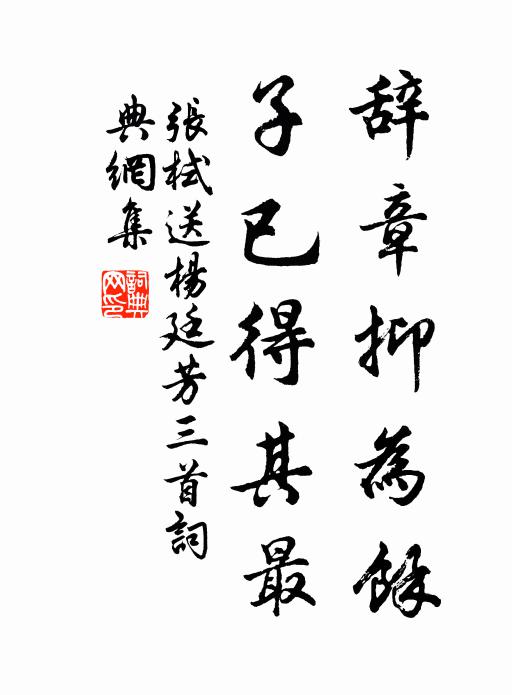 辞章抑為餘
子已得其最
張栻送楊廷芳三首詞
典網集
詞典網印